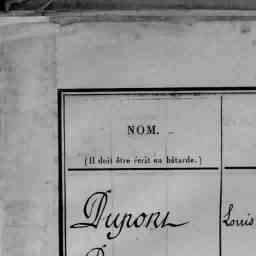 NOM.
(Il doit être écrit en bâtarde.)
Dupont Louis